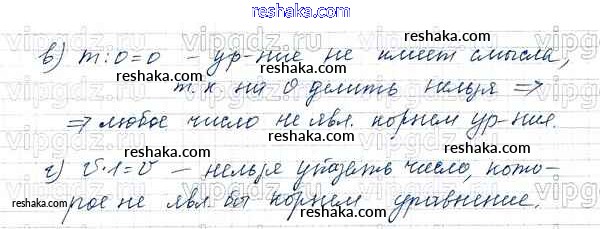 reshaka.com
в) m:0=0 – ур-ние не имеет смысла,
reshaka.com reshaka.com
т.к на 0 делить нельзя ⇒
reshaka.com
⇒ любое число не явл. корнем ур-ния.
reshaka.com reshaka.com
г) v·1=v – нельзя указать число, кото-
reshaka.com
рое не явл. бы корнем уравнение.
reshaka.com reshaka.com